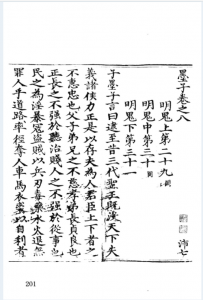 墨子卷之八
明鬼上第二十九 闕
明鬼中第三十 闕
明鬼下第三十一
子墨子言曰逮至昔三代聖王既没天下失
義諸侯力正是以存夫為人君臣上下者之
不惠忠也父子弟兄之不慈孝弟長貞良也
正長之不強於聽治賤人之不強於從事也
民之為淫暴寇盗賊以兵刃毒藥水火退無
罪人乎道路率徑奪人車馬衣裘以自利者
201